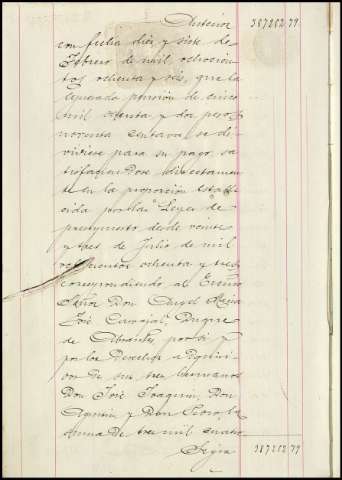 Anterior 387202 79
con fecha diez y siete de
Febrero de mil ochocien
tos ochenta y seis, que la
expresada pension de cinco
mil ochenta y dos pesos
noventa centavos se di-
vidiese para su pago, sa
tisfaciendose directamen
te en la proporcion estable
cida por las Leyes de
presupuesto desde veinte
y tres de Julio de mil
ochocientos ochenta y tres
correspondiendo al Excmo
Señor Don Angel Maria
José Carvajal, Duque
de Abrantes, por si y
por los derechos
de sus tres hermanos
Don José Joaquin, Don
Agustin y Don Isidro, la
suma de tres mil cuatro
Sigue 387202 79